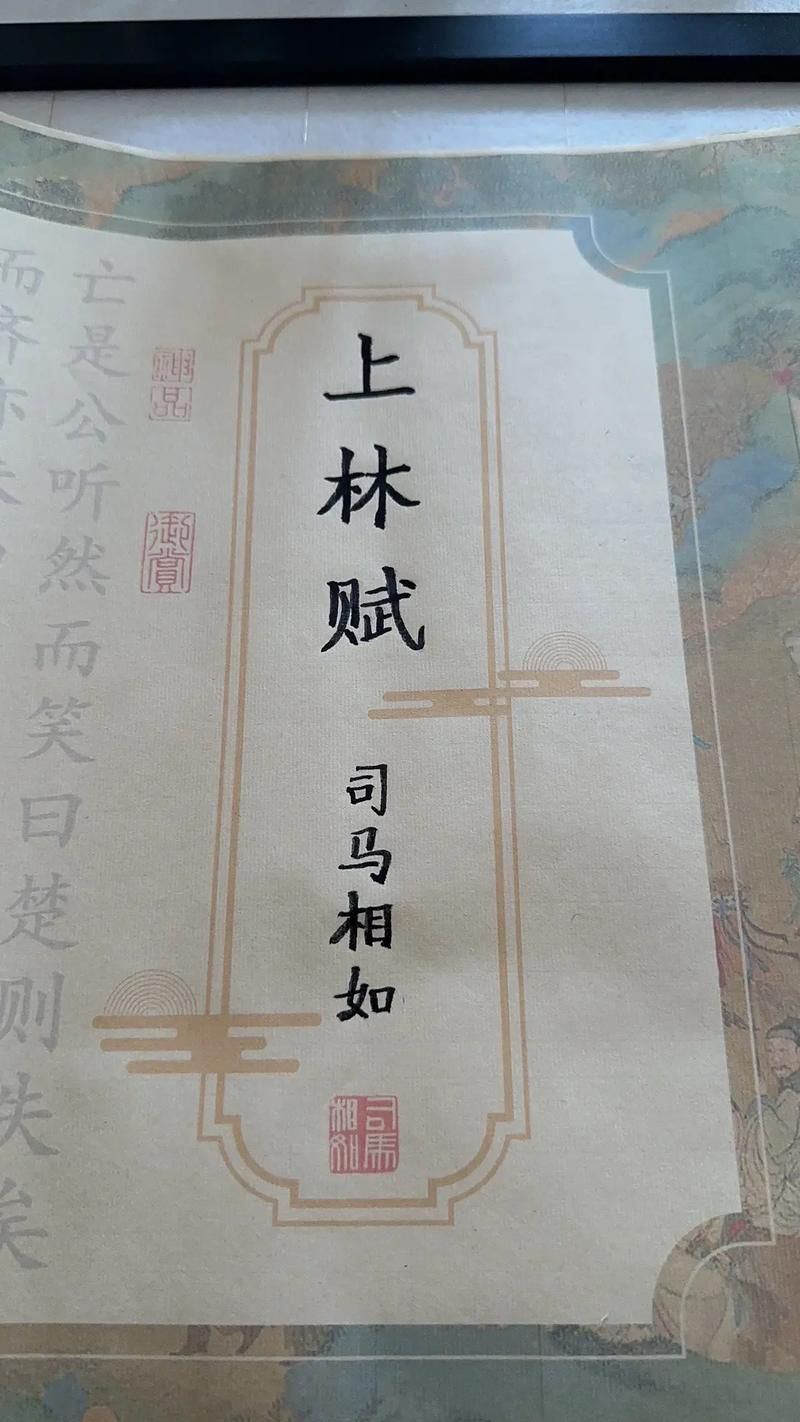 上林赋
司马相如
司马相如
神品
御赏
亡是公听然而笑曰楚则失矣
而齐亦未